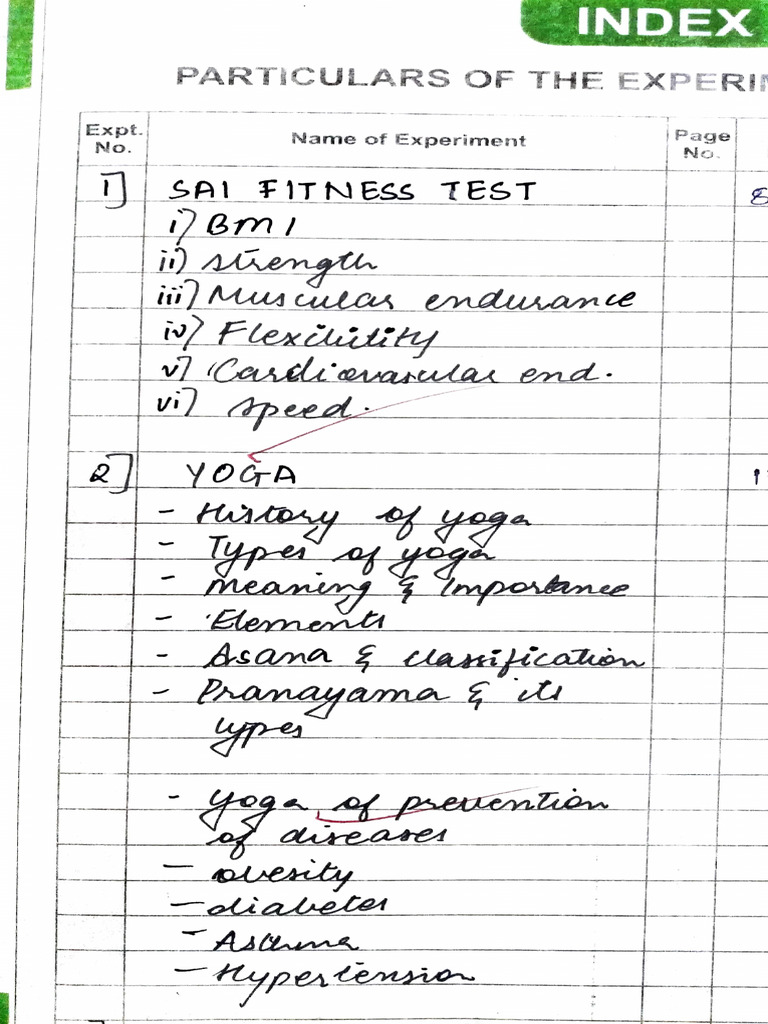 INDEX
PARTICULARS OF THE EXPERI
Expt. No.
Name of Experiment
Page No.
1] SAI FITNESS TEST
i) BMI
ii) strength
iii) Muscular endurance
iv) Flexibility
v) Cardiovascular end.
vi) speed.
2] YOGA
- History of yoga
- Types of yoga
- Meaning & Importance
- Elements
- Asana & classification
- Pranayama & its
types
- yoga of prevention
of diseases
- obesity
- diabetes
- Asthma
- Hypertension